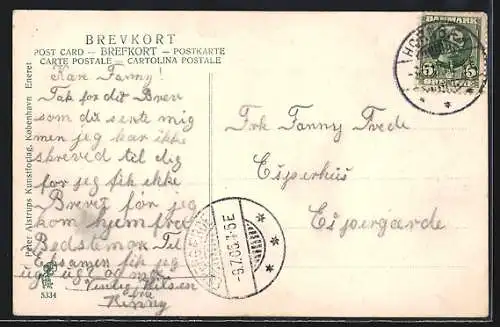 BREVKORT
POST CARD — BREFKORT — POSTKARTE
CARTE POSTALE — CARTOLINA POSTALE
Peter Alstrups Kunstforlag, København Eneret
5334
Kære Fanny!
Tak for dit Brev
som du sente mig
men jeg har ikke
skreved til dig
for jeg fik ikke
Brevet før jeg
kom hjem fra
Bedstemor. Til
Eksamen fik jeg
ug, ug? og
Venlig Hilsen
fra
Frk Fanny Trede
Esperhus
Espergærde
DANMARK
5 5
-6.7.06. 7-5E